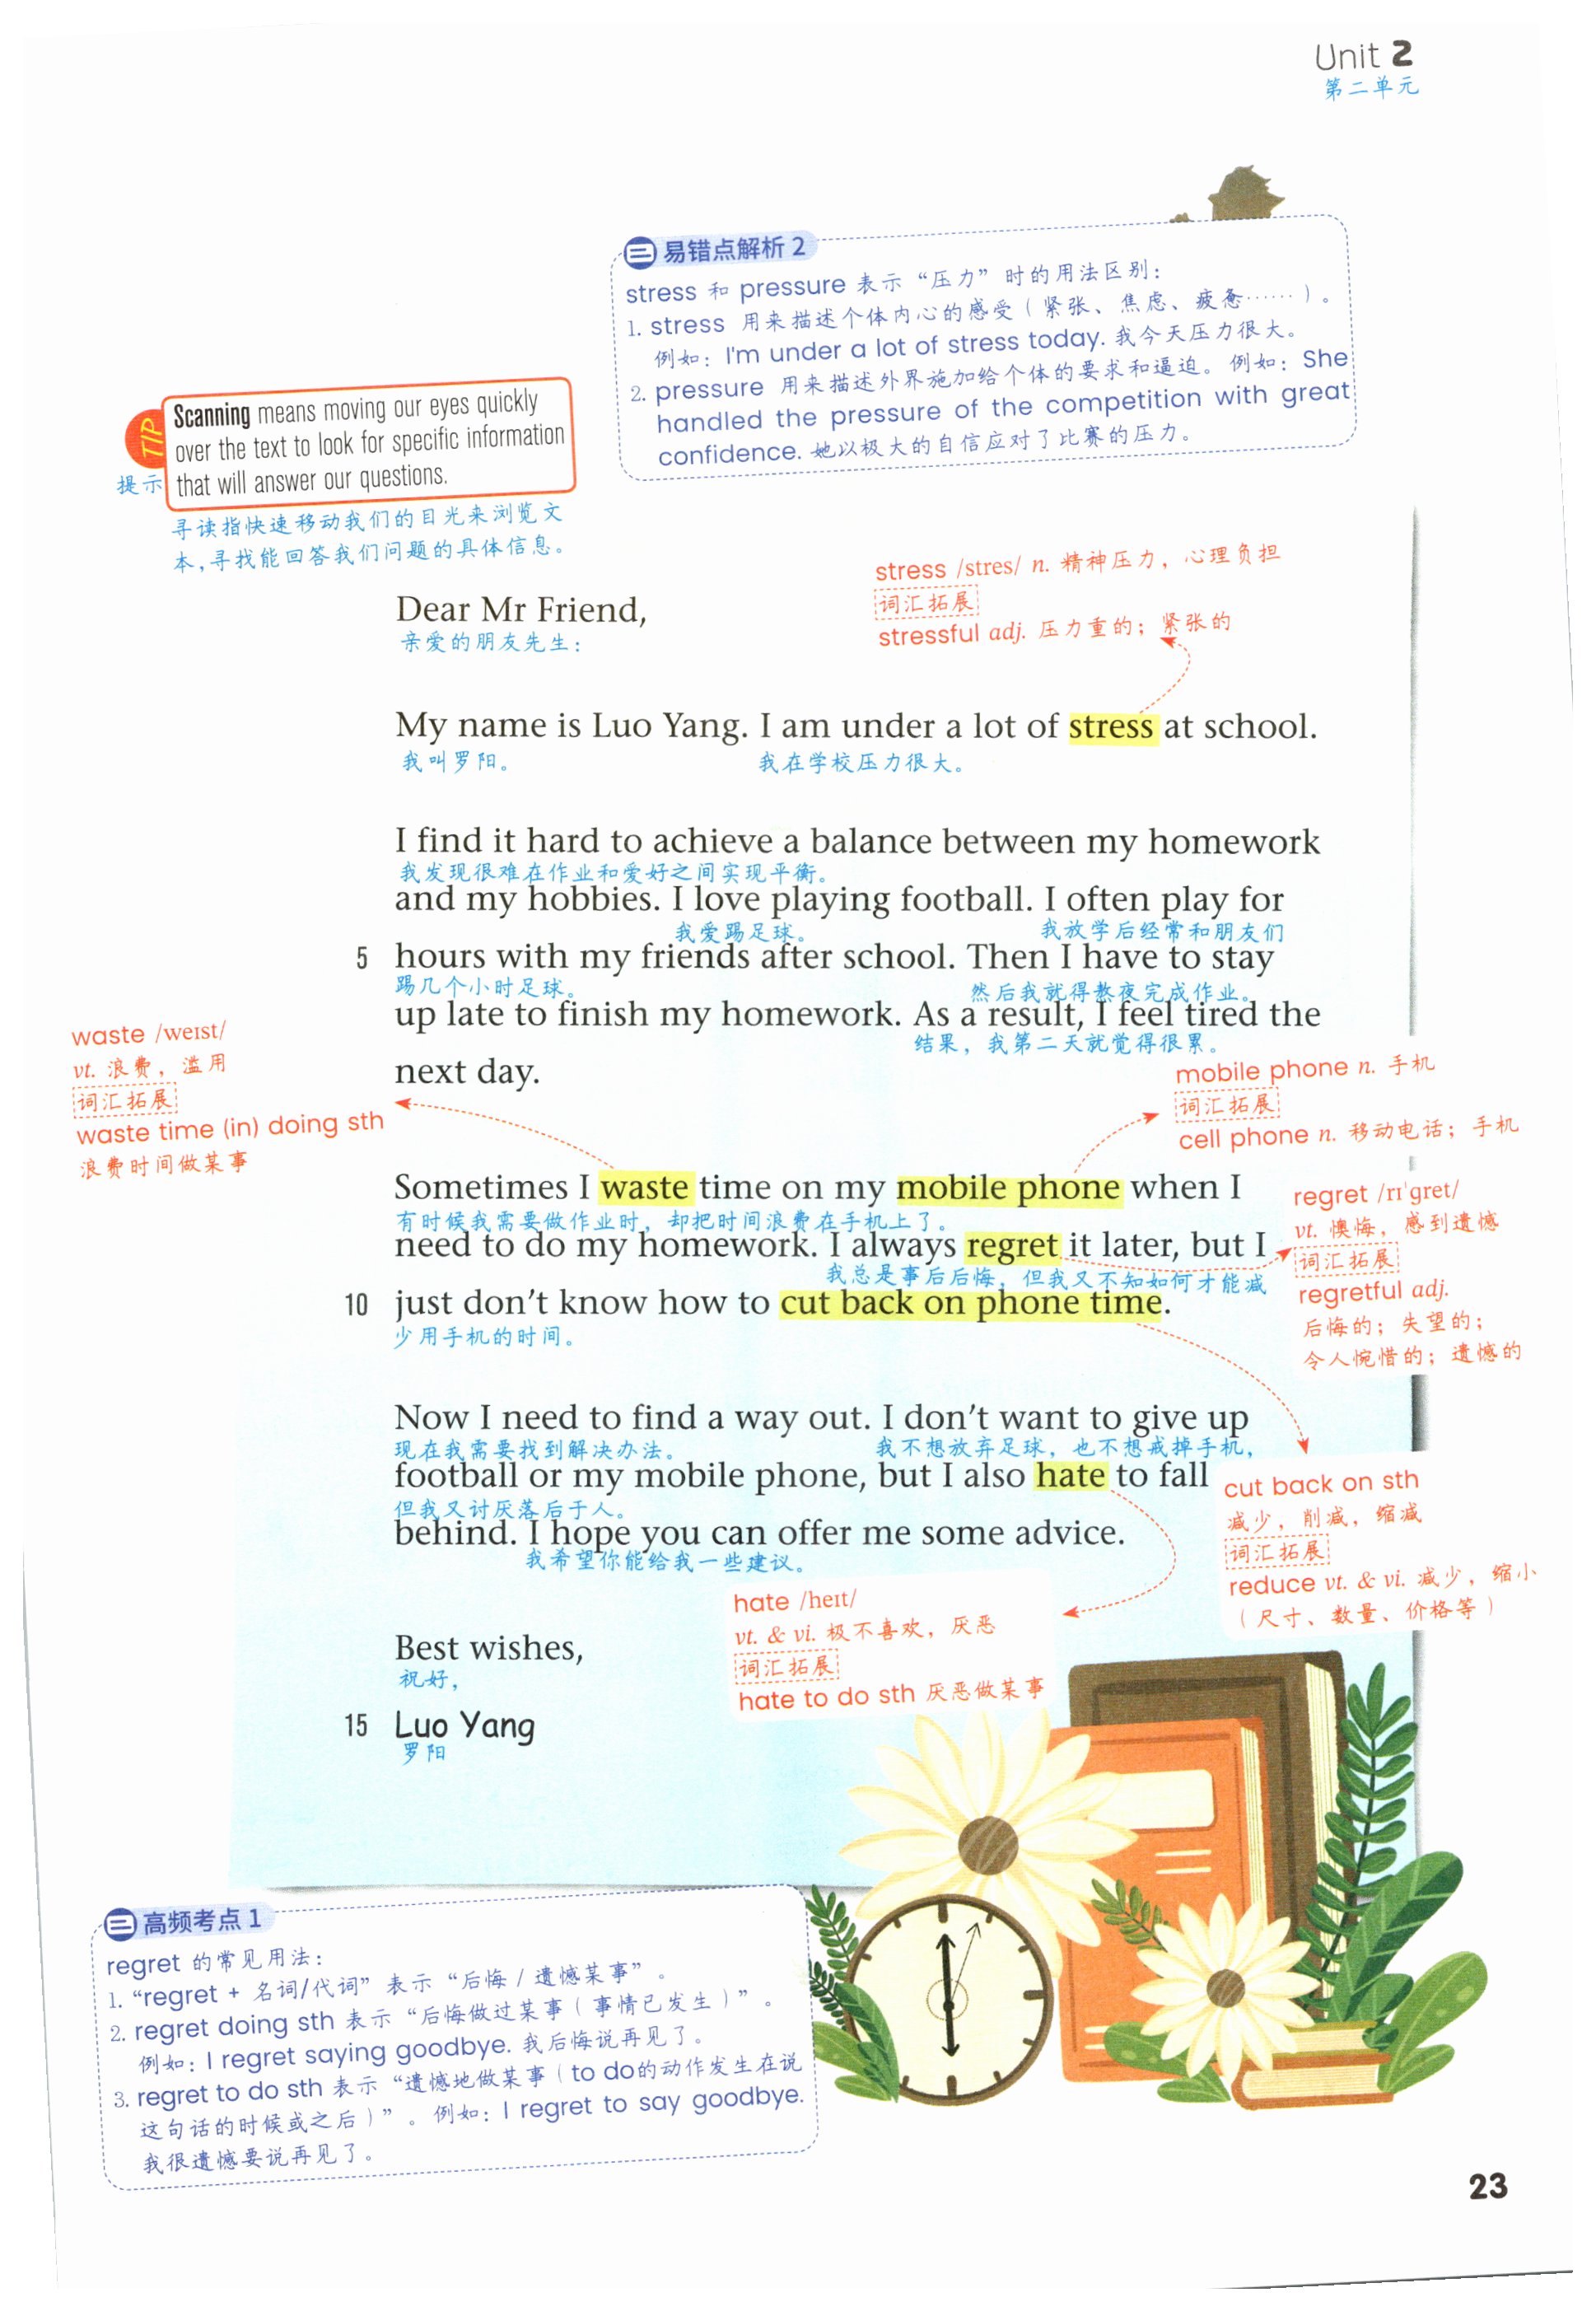 Unit 2
第二单元
易错点解析 2
stress 和 pressure 表示“压力”时的用法区别：
1. stress 用来描述个体内心的感受（紧张、焦虑、疲惫……）。
例如：I'm under a lot of stress today. 我今天压力很大。
2. pressure 用来描述外界施加给个体的要求和逼迫。例如：She
handled the pressure of the competition with great
confidence. 她以极大的自信应对了比赛的压力。
TIP
提示
Scanning means moving our eyes quickly
over the text to look for specific information
that will answer our questions.
寻读指快速移动我们的目光来浏览文
本，寻找能回答我们问题的具体信息。
stress /stres/ n. 精神压力，心理负担
词汇拓展
stressful adj. 压力重的；紧张的
Dear Mr Friend,
亲爱的朋友先生：
My name is Luo Yang. I am under a lot of stress at school.
我叫罗阳。 我在学校压力很大。
I find it hard to achieve a balance between my homework
我发现很难在作业和爱好之间实现平衡。
and my hobbies. I love playing football. I often play for
我爱踢足球。 我放学后经常和朋友们
5 hours with my friends after school. Then I have to stay
踢几个小时足球。 然后我就得熬夜完成作业。
up late to finish my homework. As a result, I feel tired the
结果，我第二天就觉得很累。
next day.
waste /weɪst/
vt. 浪费，滥用
词汇拓展
waste time (in) doing sth
浪费时间做某事
mobile phone n. 手机
词汇拓展
cell phone n. 移动电话；手机
Sometimes I waste time on my mobile phone when I
有时候我需要做作业时，却把时间浪费在手机上了。
need to do my homework. I always regret it later, but I
我总是事后后悔，但我又不知如何才能减
10 just don't know how to cut back on phone time.
少用手机的时间。
regret /rɪˈɡret/
vt. 懊悔，感到遗憾
词汇拓展
regretful adj.
后悔的；失望的；
令人惋惜的；遗憾的
Now I need to find a way out. I don't want to give up
现在我需要找到解决办法。 我不想放弃足球，也不想戒掉手机，
football or my mobile phone, but I also hate to fall
但我又讨厌落后于人。
behind. I hope you can offer me some advice.
我希望你能给我一些建议。
cut back on sth
减少，削减，缩减
词汇拓展
reduce vt. & vi. 减少，缩小
（尺寸、数量、价格等）
hate /heɪt/
vt. & vi. 极不喜欢，厌恶
词汇拓展
hate to do sth 厌恶做某事
Best wishes,
祝好，
15 Luo Yang
罗阳
高频考点 1
regret 的常见用法：
1. “regret + 名词/代词” 表示“后悔 / 遗憾某事”。
2. regret doing sth 表示“后悔做过某事（事情已发生）”。
例如：I regret saying goodbye. 我后悔说再见了。
3. regret to do sth 表示“遗憾地做某事（to do的动作发生在说
这句话的时候或之后）”。例如：I regret to say goodbye.
我很遗憾要说再见了。
23